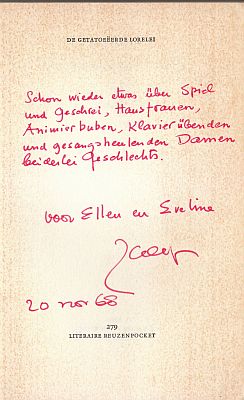 DE GETATOEËERDE LORELEI
Schon wieder etwas über Spiel
und Geschrei, Hausfrauen,
Animierbuben, Klavierübenden
und gesangsheulenden Damen
beiderlei Geschlechts.
voor Ellen en Eveline
20 nov 68
279
LITERAIRE REUZENPOCKET